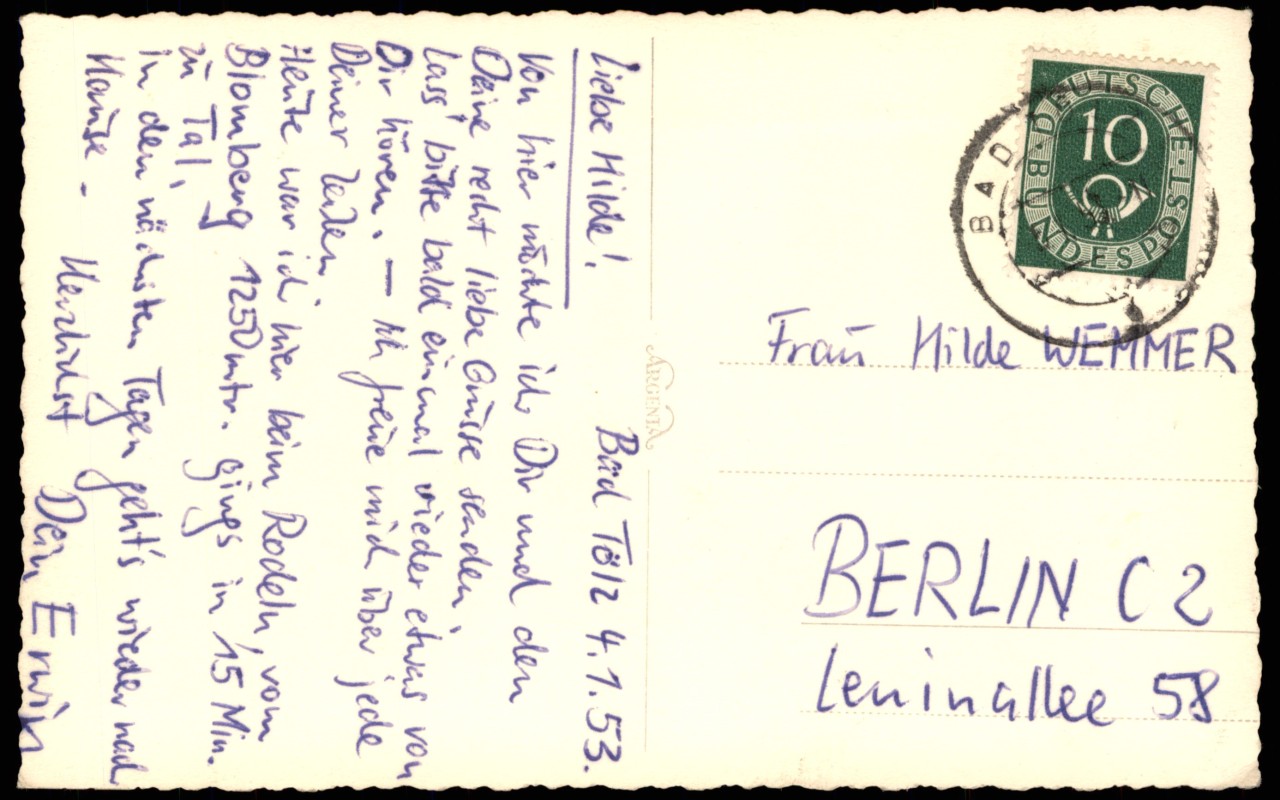 Bad Tölz 4.1.53.
Liebe Hilde!
Von hier möchte ich Dir und den
Deine recht liebe Grüsse senden,
lass' bitte bald einmal wieder etwas von
Dir hören. — Ich freue mich über jede
Deiner Zeilen.
Heute war ich hier beim Rodeln, vom
Blomberg 1250 mtr. gings in 15 Min.
zu Tal,
in den nächsten Tagen geht's wieder nach
Hause -
Herzlichst
Dein Erwin
ARGENTA
BAD
DEUTSCHE BUNDESPOST
10
Frau Hilde WEMMER
BERLIN C 2
Leninallee 58